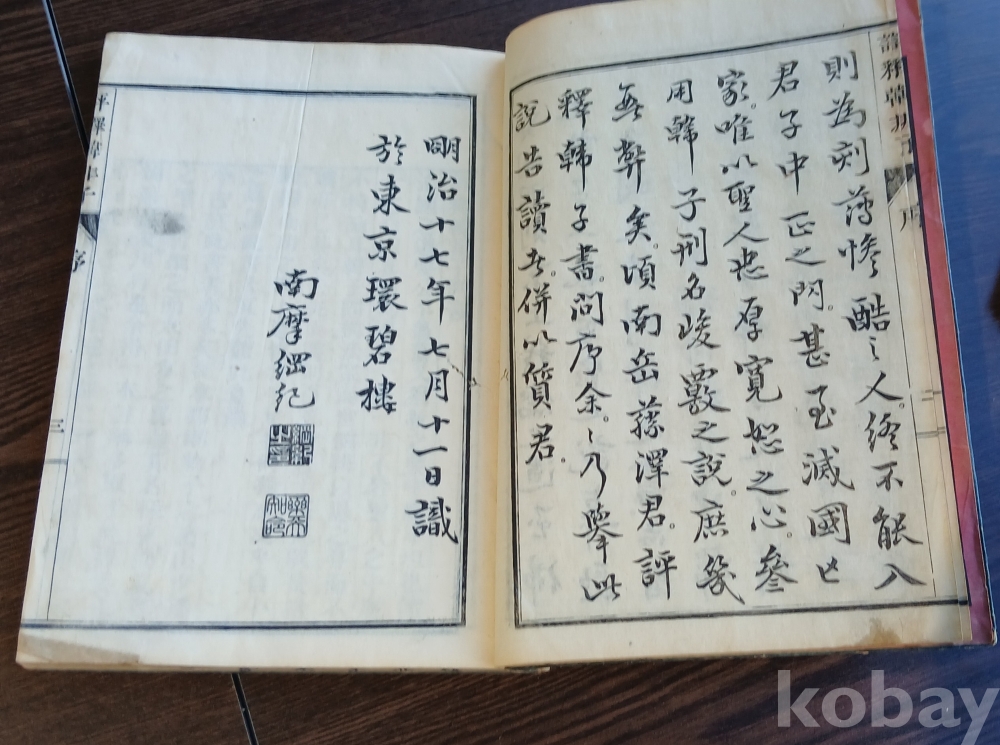 則為刻薄惨酷之人。終不能入
君子中正之門。甚至滅國亡
家。唯以聖人忠厚寛恕之心。參
用韓子刑名峻覈之說。庶幾
無弊矣。頃南岳藤澤君。評
釋韓子書。問序余。〻乃擧此
説告讀者。併以質君。
明治十七年七月十一日識
於東京環碧樓
南摩綱紀
序
三
kobay